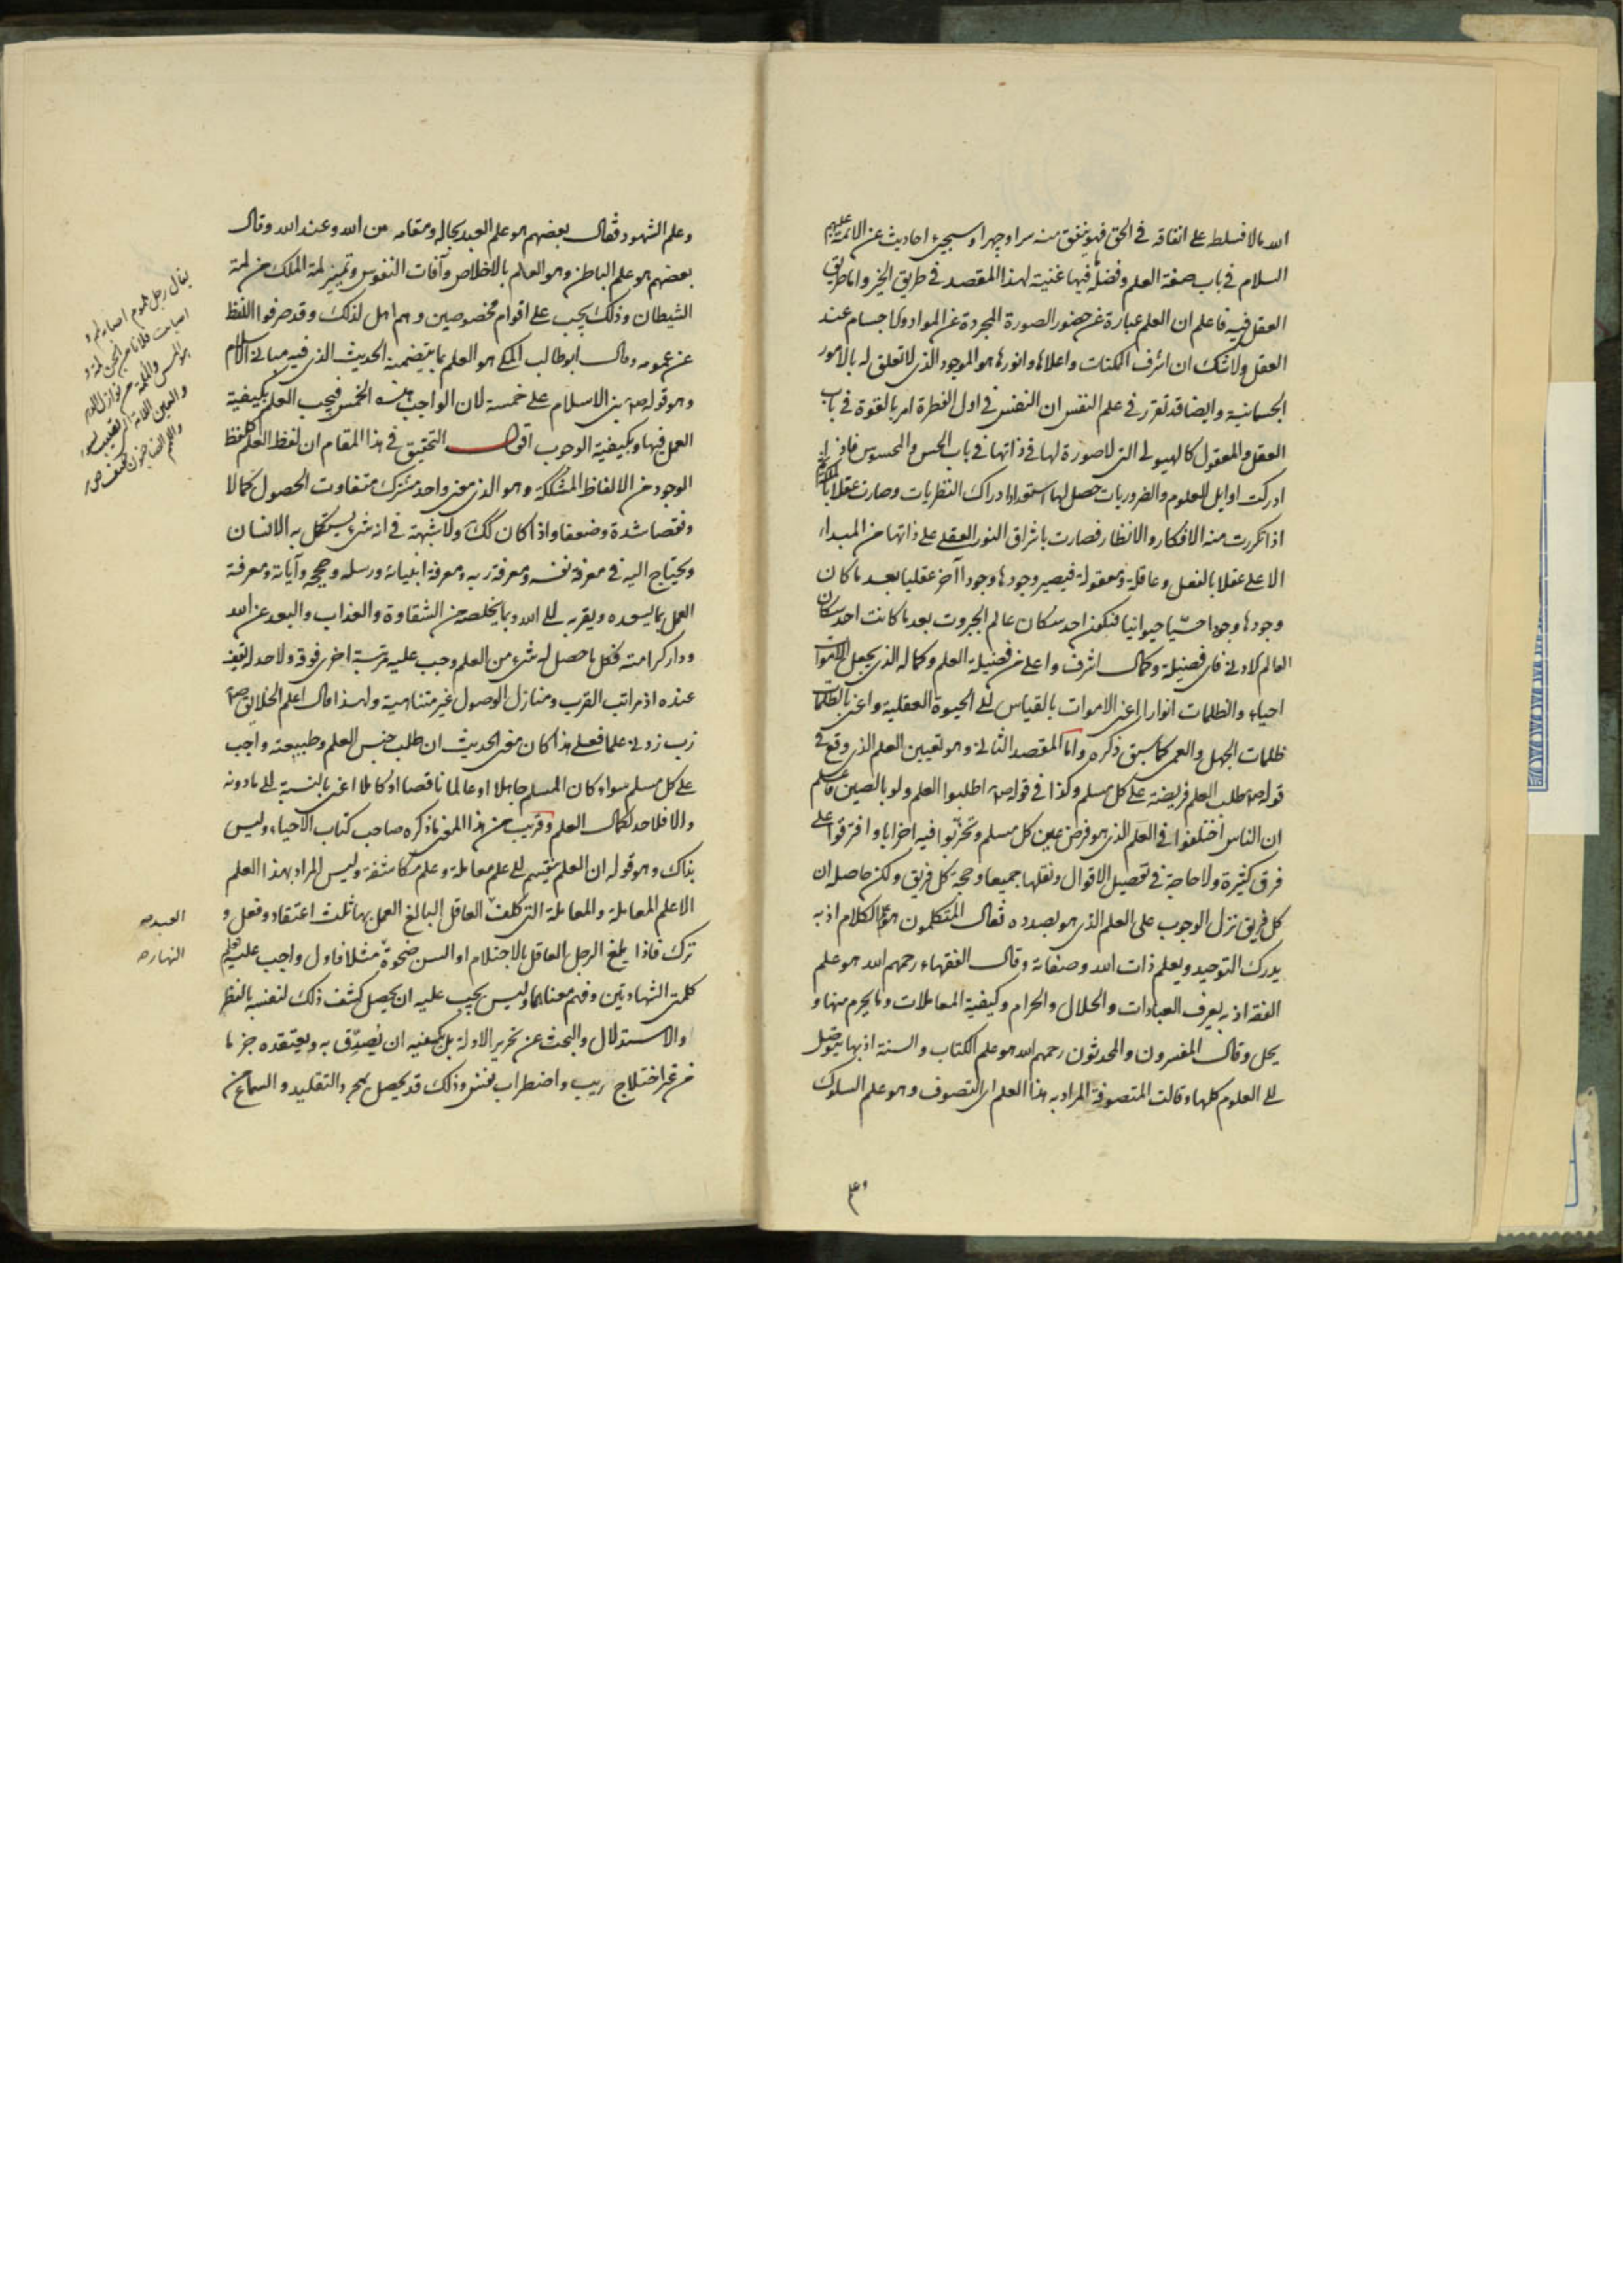 الله مالا فسلط على انفاقه في الحق فهو ينفق منه سرا وجهرا وسيجيء احاديث عن الائمة عليهم
السلام في باب صفة العلم وفضله فيها غنية لهذا المقصد في طريق الخبر واما طريق
العقل فيه فاعلم ان العلم عبارة عن حضور الصورة المجردة عن المواد والاجسام عند
العقل ولا شك ان اشرف الممكنات واعلاها وانورها هو الموجود الذي لا تعلق له بالامور
الجسمانية وايضا قد تقرر في علم النفس ان النفس في اول الفطرة امر بالقوة في باب
العقل والمعقول كالهيولى التي لا صورة لها في ذاتها في باب الحس والمحسوس فاذا
ادركت اوايل العلوم والضروريات حصل لها استعداد ادراك النظريات وصارت عقلا بالملكة
اذا تكررت منه الافكار والانظار فصارت باشراق النور العقلي على ذاتها من المبداء
الاعلى عقلا بالفعل وعاقلة ومعقولة فيصير وجودها وجودا آخر عقليا بعد ما كان
وجودها وجودا حسّيا حيوانيا فتكون احد سكان عالم الجبروت بعد ما كانت احد سكان
العالم الادنى فاى فضيلة وكمال اشرف واعلى من فضيلة العلم وكماله الذي يجعل الاموات
احياء والظلمات انوارا اعنى الاموات بالقياس الى الحيوة العقلية واعنى بالظلمات
ظلمات الجهل والعمى كما سبق ذكره واما المقصد الثاني وهو تعيين العلم الذي وقع في
قوله ص طلب العلم فريضة على كل مسلم وكذا في قوله ص اطلبوا العلم ولو بالصين فاعلم
ان الناس اختلفوا في العلم الذي هو فرض عين كل مسلم وتحزّبوا فيه احزابا وافترقوا على
فرق كثيرة ولا حاجة في تفصيل الاقوال ونقلها جميعا وحجة كل فريق ولكن حاصله ان
كل فريق نزل الوجوب على العلم الذي هو بصدده فقال المتكلمون هو علم الكلام اذ به
يدرك التوحيد ويعلم ذات الله وصفاته وقال الفقهاء رحمهم الله هو علم
الفقه اذ به يعرف العبادات والحلال والحرام وكيفية المعاملات وما يحرم منها و
يحل وقال المفسرون والمحدثون رحمهم الله هو علم الكتاب والسنة اذ بها يتوصل
الى العلوم كلها وقالت المتصوفة المراد به هذا العلم اى التصوف وهو علم السلوك
وعلم
وعلم الشهود فقال بعضهم هو علم العبد بحاله ومقامه من الله وعند الله وقال
بعضهم هو علم الباطن وهو العلم بالاخلاص وآفات النفوس وتمييز لمة الملك من لمة
الشيطان وذلك يجب على اقوام مخصوصين وهم اهل لذلك وقد صرفوا اللفظ
عن عمومه وقال ابو طالب المكي هو العلم بما يتضمنه الحديث الذي فيه مباني الاسلام
وهو قوله ص بنى الاسلام على خمسة لان الواجب هذه الخمس فيجب العلم بكيفية
العمل فيها وبكيفية الوجوب اقول التحقيق في هذا المقام ان لفظ العلم كلفظ
الوجود من الالفاظ المشككة وهو الذي معنى واحد مشترك متفاوت الحصول كمالا
ونقصا شدة وضعفا واذا كان كك ولا شبهة في انه شيء يستكمل به الانسان
ويحتاج اليه في معرفة نفسه ومعرفة ربه ومعرفة انبيائه ورسله وحججه وآياته ومعرفة
العمل بما يسعده ويقربه الى الله وبما يخلصه من الشقاوة والعذاب والبعد عن الله
ودار كرامته فكل ما حصل له شيء من العلم وجب عليه مرتبة اخرى فوقه ولا حد له يقف
عنده اذ مراتب القرب ومنازل الوصول غير متناهية ولهذا قال اعلم الخلايق ص
رب زدني علما فعلى هذا كان معنى الحديث ان طلب جنس العلم وطبيعته واجب
على كل مسلم سواء كان المسلم جاهلا او عالما ناقصا او كاملا اعنى بالنسبة الى ما دونه
والا فلا حد لكمال العلم وقريب من هذا المعنى ما ذكره صاحب كتاب الاحياء وليس
بذاك وهو قوله ان العلم ينقسم الى علم معاملة وعلم مكاشفة وليس المراد بهذا العلم
الا علم المعاملة والمعاملة التي كلف العاقل البالغ العمل بها ثلث اعتقاد وفعل و
ترك فاذا بلغ الرجل العاقل بالاحتلام او السن ضحوة مثلا فاول واجب عليه تعلم
كلمتى الشهادتين وفهم معناهما وليس يجب عليه ان يحصل كشف ذلك لنفسه بالنظر
والاستدلال والبحث عن تحرير الادلة بل يكفيه ان يُصدّق به ويعتقده جزما
من غير اختلاج ريب واضطراب نفس وذلك قد يحصل بمجرد التقليد والسماع من
العبد ص
النهار ص